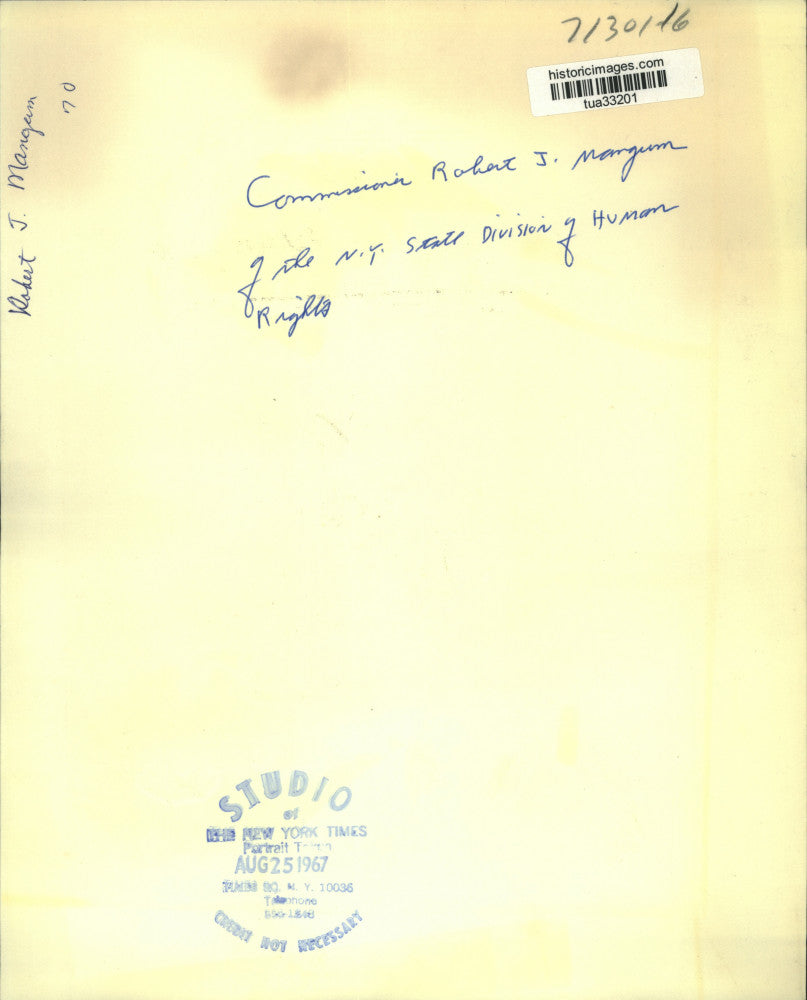 7/30/16
historicimages.com
tua33201
Robert J. Mangum
70
Commissioner Robert J. Mangum
of the N.Y. State Division of Human
Rights
STUDIO
of
THE NEW YORK TIMES
Portrait Taken
AUG 25 1967
TIMES SQ. N. Y. 10036
Telephone
CREDIT NOT NECESSARY